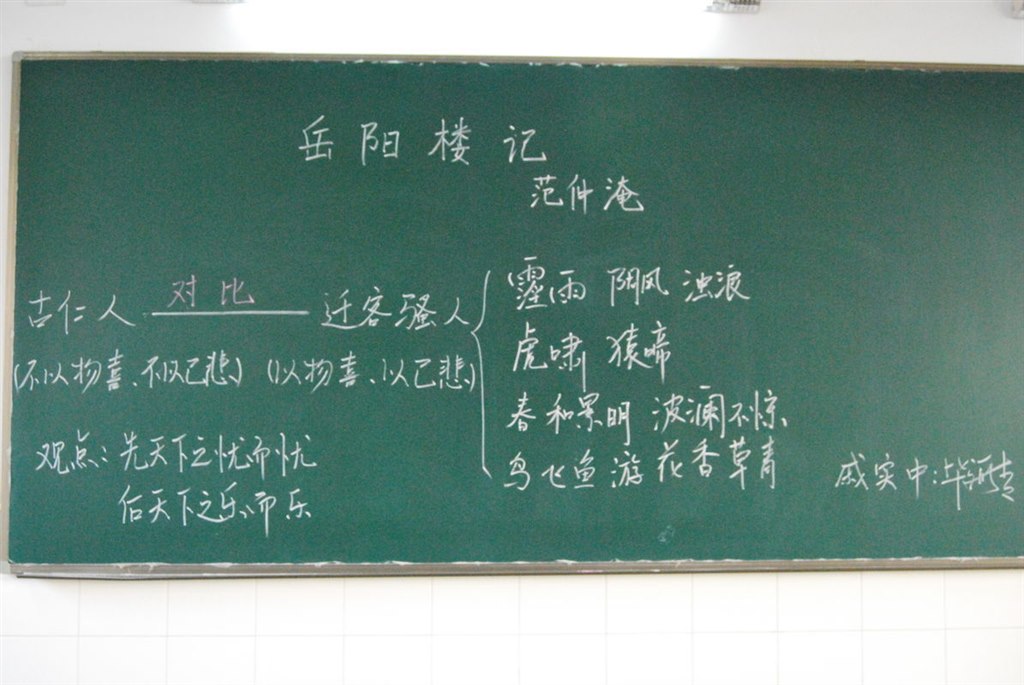 岳阳楼记
范仲淹
古仁人 对比 迁客骚人
(不以物喜、不以己悲) (以物喜、以己悲)
观点:先天下之忧而忧
后天下之乐而乐
霪雨 阴风 浊浪
虎啸 猿啼
春和景明 波澜不惊
鸟飞鱼游 花香草青
戚实中:毕